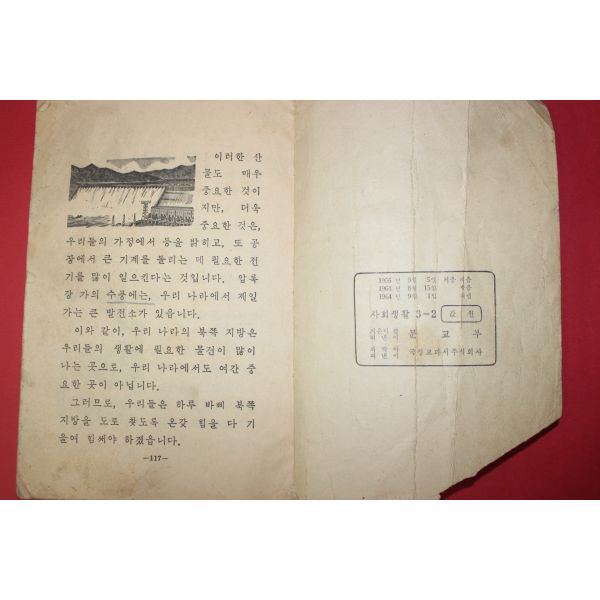 이러한 산
물도 매우
중요한 것이
지만, 더욱
중요한 것은,
우리들의 가정에서 등을 밝히고, 또 공
장에서 큰 기계를 돌리는 데 필요한 전
기를 많이 일으킨다는 것입니다. 압록
강 가의 수풍에는, 우리 나라에서 제일
가는 큰 발전소가 있읍니다.
이와 같이, 우리 나라의 북쪽 지방은
우리들의 생활에 필요한 물건이 많이
나는 곳으로, 우리 나라에서도 여간 중
요한 곳이 아닙니다.
그러므로, 우리들은 하루 바삐 북쪽
지방을 도로 찾도록 온갖 힘을 다 기
울여 힘써야 하겠읍니다.
—117—
1955 년 9월 5일
1964 년 8월 15일
1964 년 9월 1일
사회생활 3-2
문 교 부
국정교과서주식회사